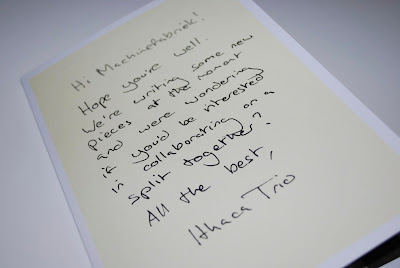 Hi Machinefabriek!
Hope you're well.
We're writing some new
pieces at the moment
and were wondering
if you'd be interested
in collaborating on a
split together?
All the best,
Ithaca Trio